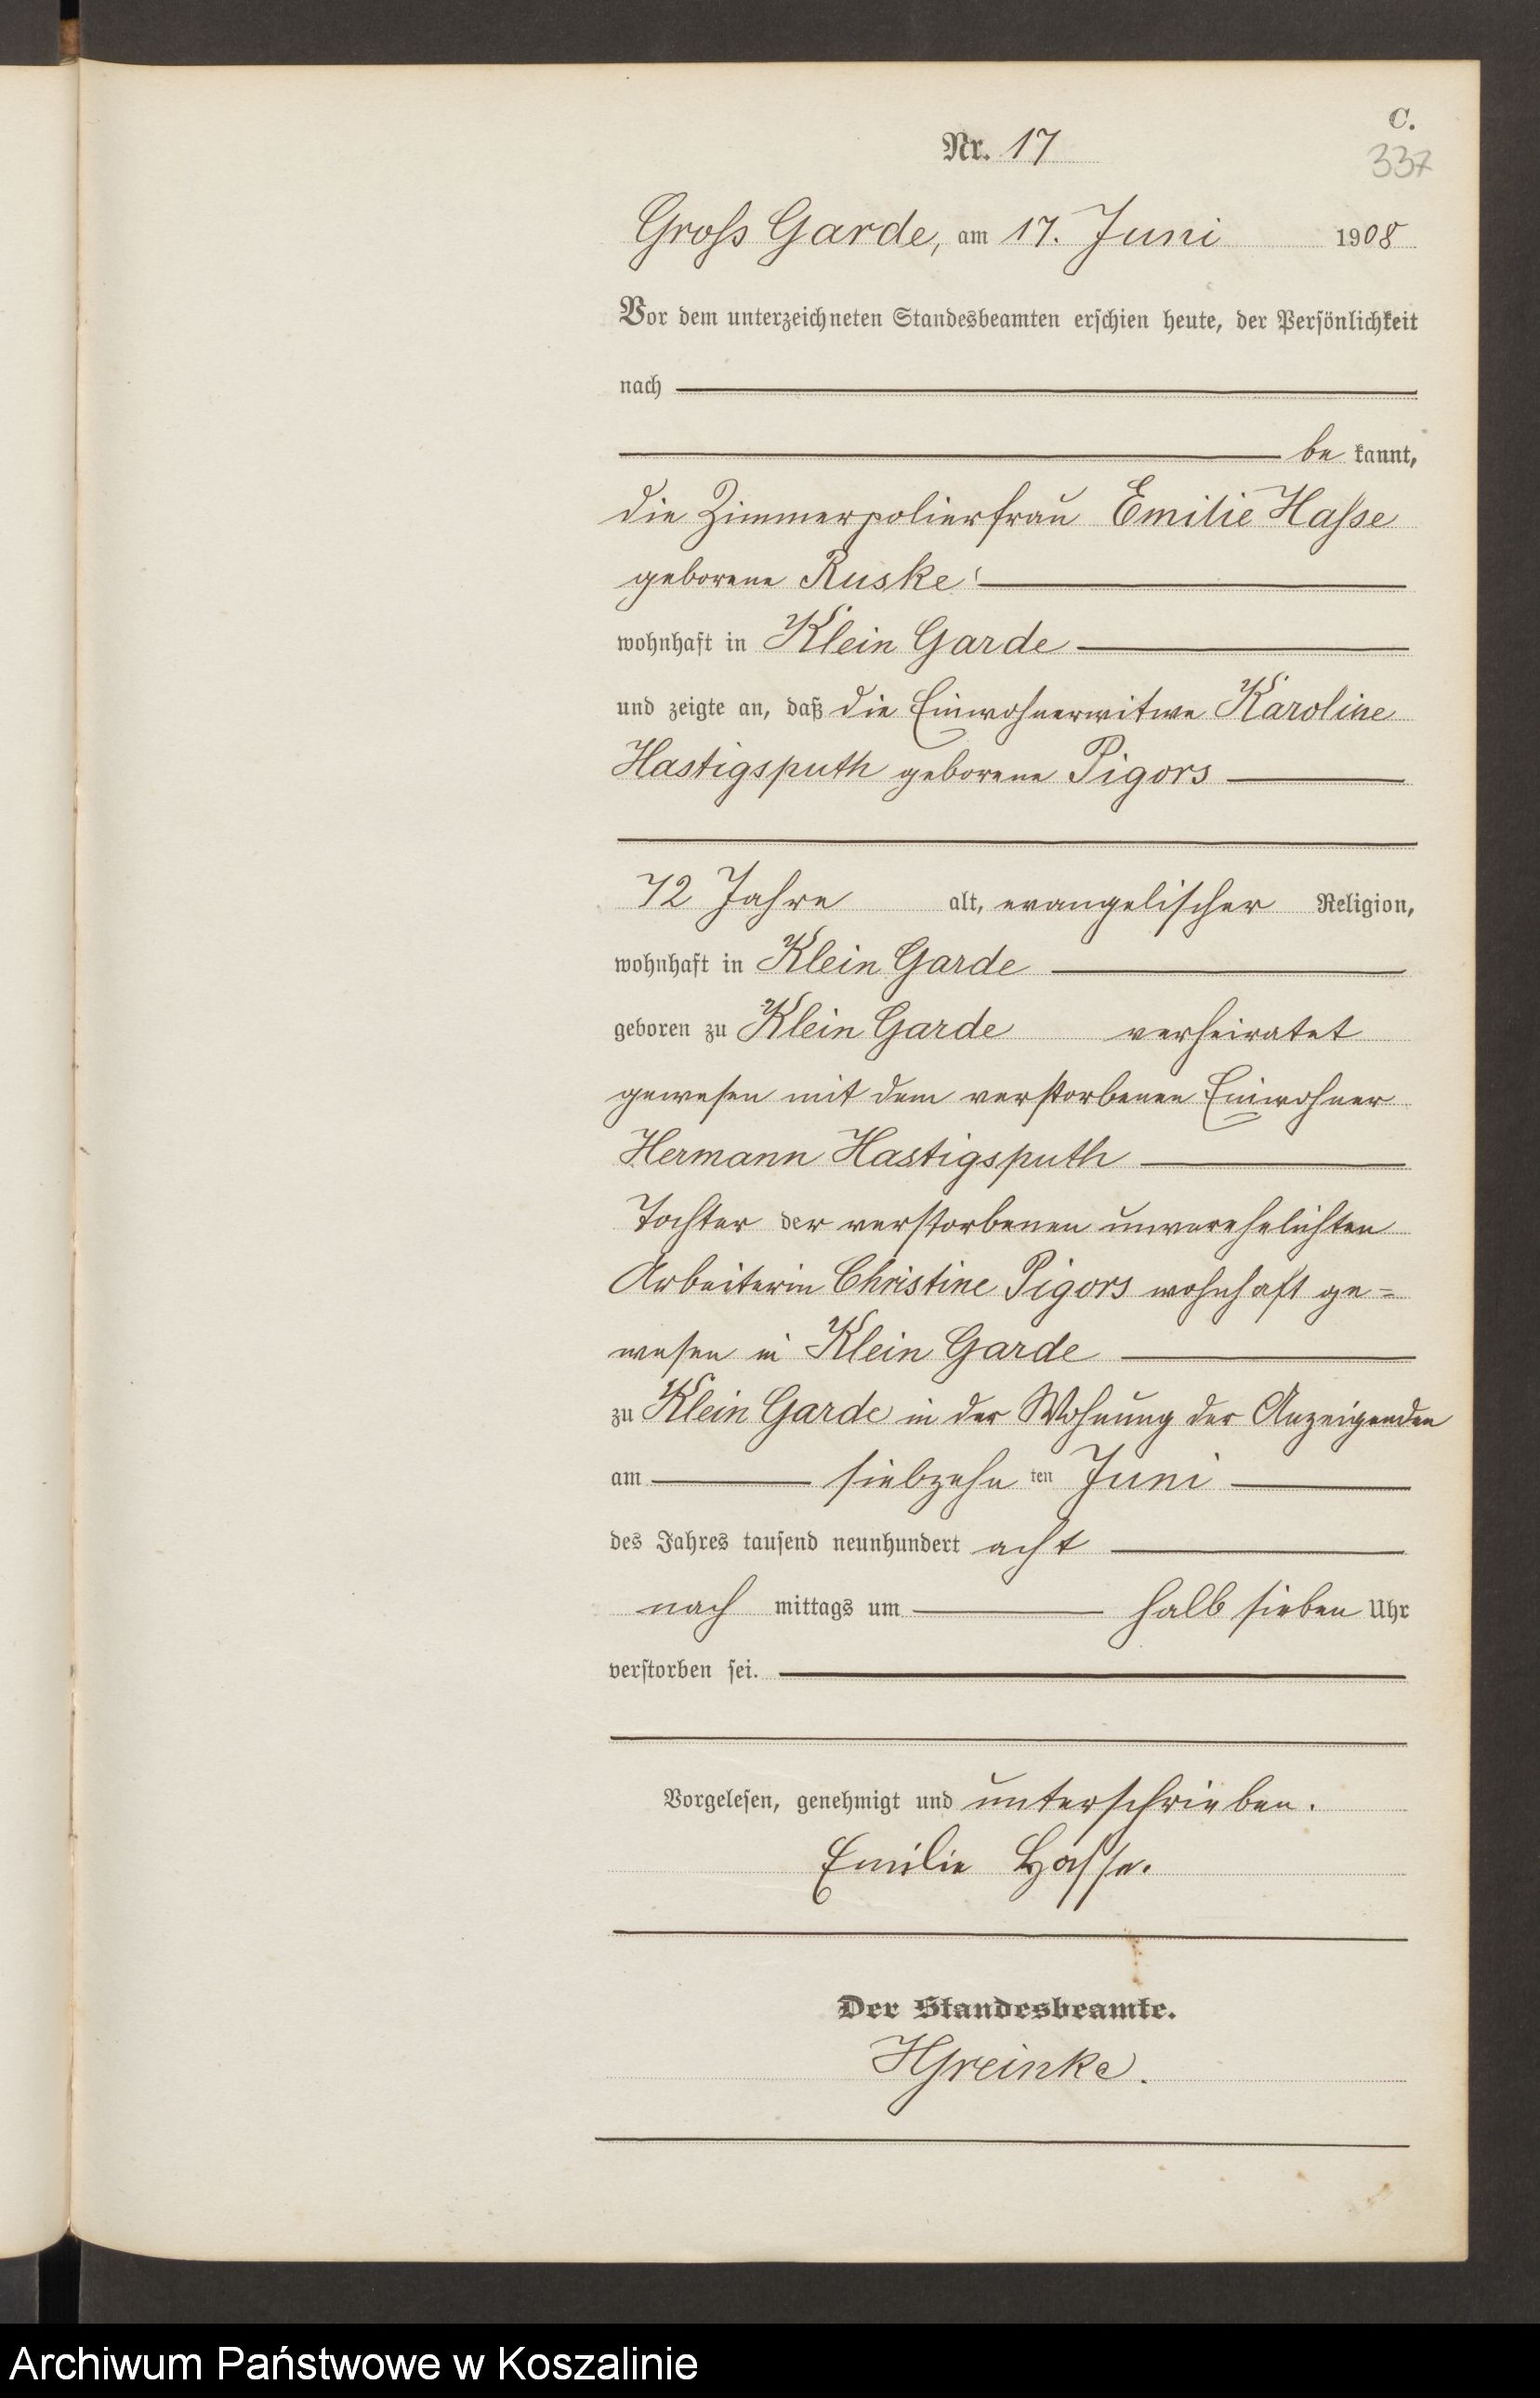 C.
Nr. 17
337
Gross Garde, am 17. Juni 1908
Vor dem unterzeichneten Standesbeamten erschien heute, der Persönlichkeit
nach
be kannt,
die Zimmerpolierfrau Emilie Hasse
geborene Ruske
wohnhaft in Klein Garde
und zeigte an, daß die Einwohnerwitwe Karoline
Hastigsputh geborene Pigors
72 Jahre alt, evangelischer Religion,
wohnhaft in Klein Garde
geboren zu Klein Garde verheiratet
gewesen mit dem verstorbenen Einwohner
Hermann Hastigsputh
Tochter der verstorbenen unverehelichten
Arbeiterin Christine Pigors wohnhaft ge=
wesen in Klein Garde
zu Klein Garde in der Wohnung der Anzeigenden
am siebzehn ten Juni
des Jahres tausend neunhundert acht
nach mittags um halb sieben Uhr
verstorben sei.
Vorgelesen, genehmigt und unterschrieben.
Emilie Hasse.
Der Standesbeamte.
HGreinke.
Archiwum Państwowe w Koszalinie